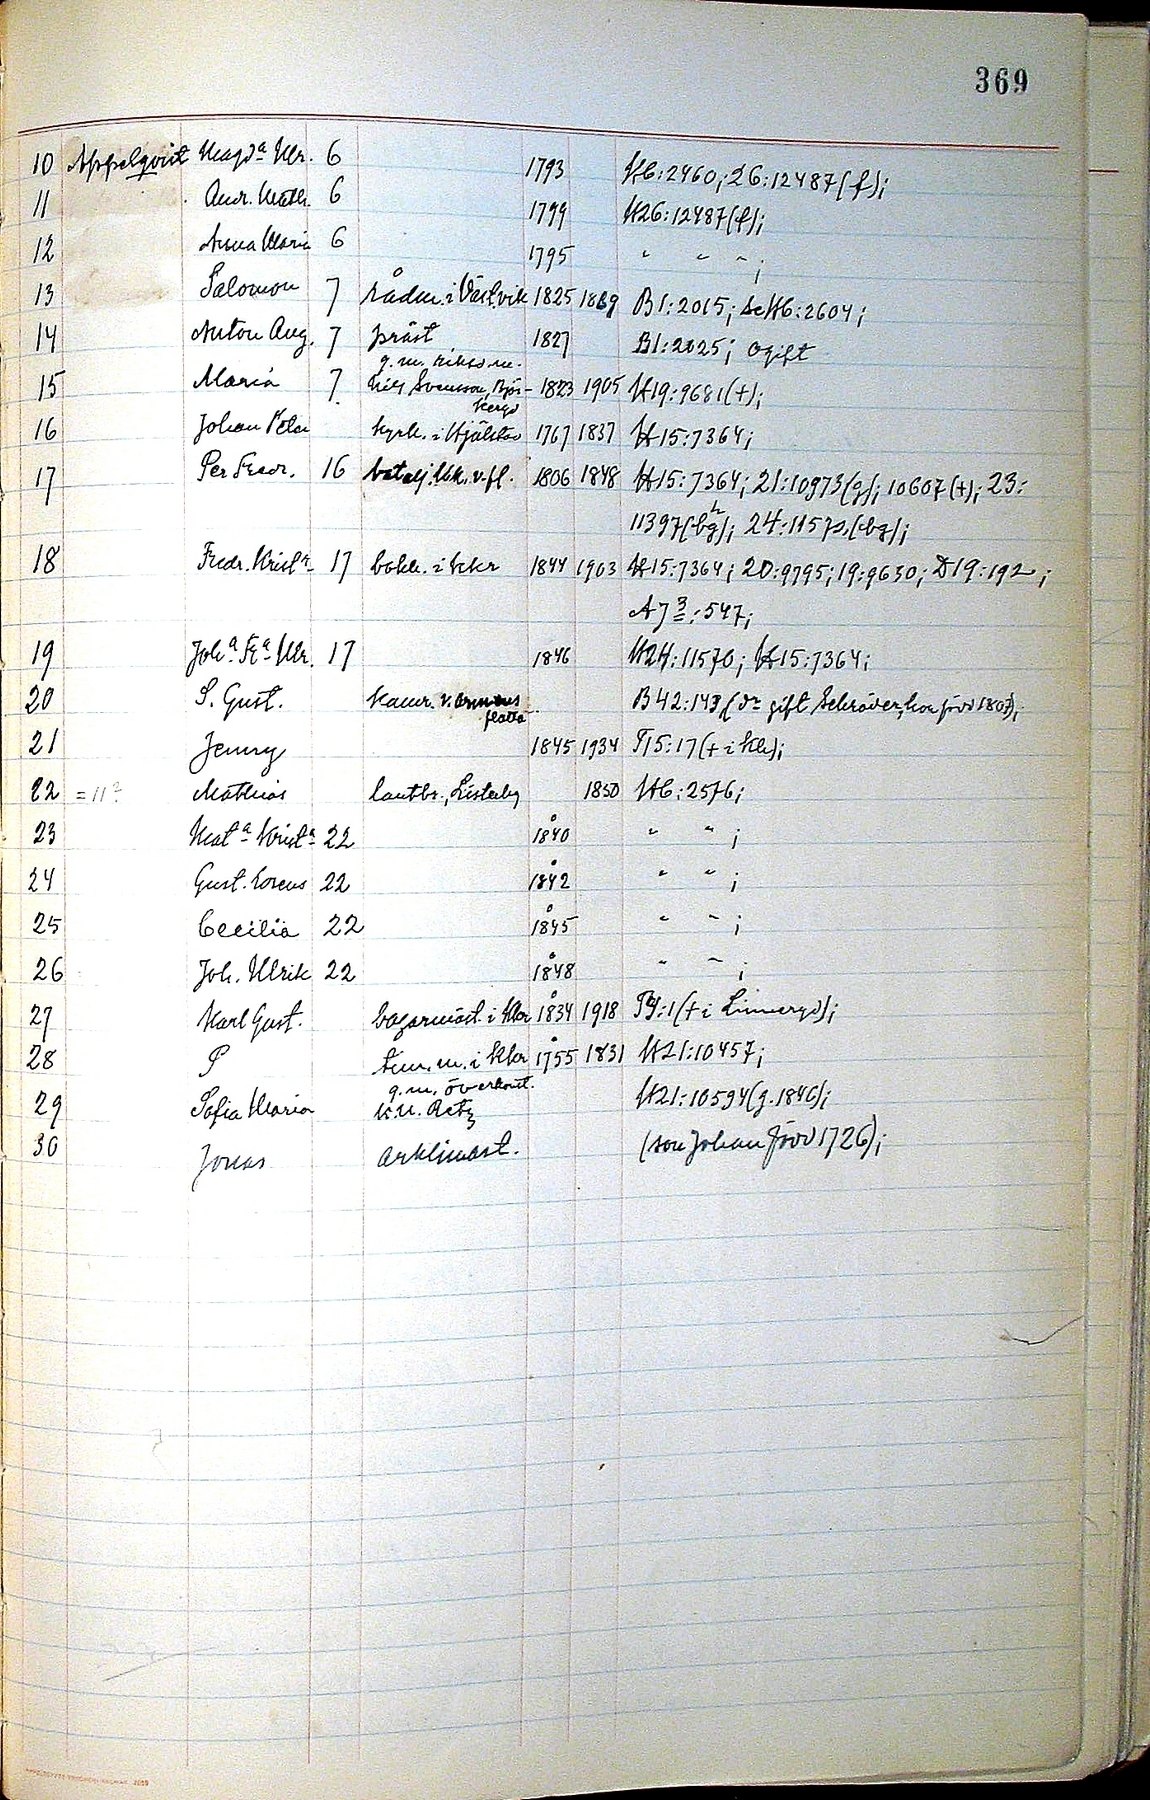 369
10 Appelqvist Magda Ulr. 6 1793 K6:2460; 26:12487(f);
11 Andr. Math. 6 1799 K26:12487(f);
12 Anna Maria 6 1795 " " " ;
13 Salomon 7 rådm. i Västvik 1825 1869 B1:2015; K6:2604;
14 Anton Aug. 7 präst 1827 B1:2025; ogift
g.m. riksd.m.
15 Maria 7 Nils Svensson, Björ- 1823 1905 K19:9681(+);
keryd
16 Johan Peter kyrk. i Hjälstad 1767 1837 K15:7364;
17 Per Fredr. 16 batalj. v. fl. 1806 1848 K15:7364; 21:10973(g); 10607(+); 23:
11397(bg); 24:11570(bg);
18 Fredr. Krist:a 17 bokh. i Kkr 1844 1903 K15:7364; 20:9795; 19:9630; D19:192;
A7 3:547;
19 Joh:a Fr:a Ulr. 17 1846 K24:11570; K15:7364;
20 S. Gust. kamr. v. armens B42:149 (dr gift Schröder, hon född 1807);
flotta
21 Jenny 1845 1934 T15:17 (+ i Kka);
22 =11? Mathias lantbr., Listerby 1850 K6:2576;
23 Mat:a Krist:a 22 1840 " " ;
24 Gust. Lorens 22 1842 " " ;
25 Cecilia 22 1845 " " ;
26 Joh. Ulrik 22 1848 " " ;
27 Karl Gust. bagarmäst. i Kkr 1834 1918 T9:1 (+ i Linneryd);
28 P tim. m. i Kkr 1755 1831 K21:10457;
g.m. överkonst.
29 Sofia Maria K.U. Retz K21:10594 (g. 1846);
30 Jonas arklimäst. (son Johan född 1726);